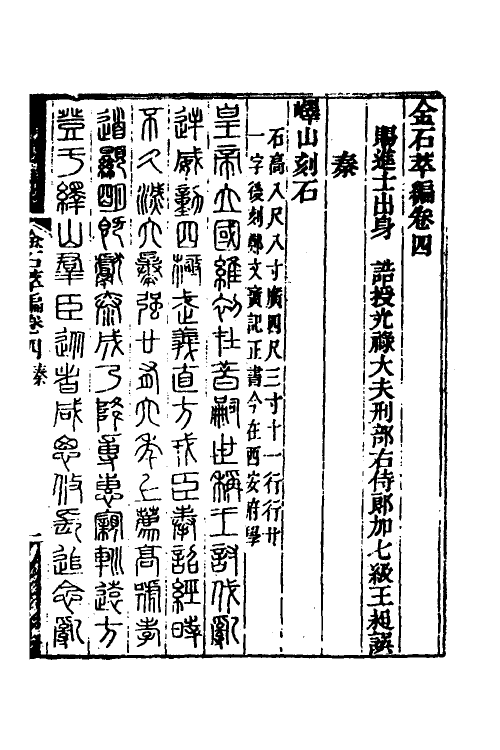 金石萃編卷四
賜進士出身　誥授光祿大夫刑部右侍郎加七級王昶譔
秦
嶧山刻石
石高八尺八寸廣四尺三寸十一行行廿
一字後刻鄭文寶記正書今在西安府學
皇帝立國維初在昔嗣世稱王討伐亂
逆威動四極武義直方戎臣奉詔經時
不久滅六暴強廿有六年上薦高號孝
道顯明既獻泰成乃降尃惠寴巡遠方
登于繹山羣臣從者咸思攸長追念亂
金石萃編卷四　秦　一